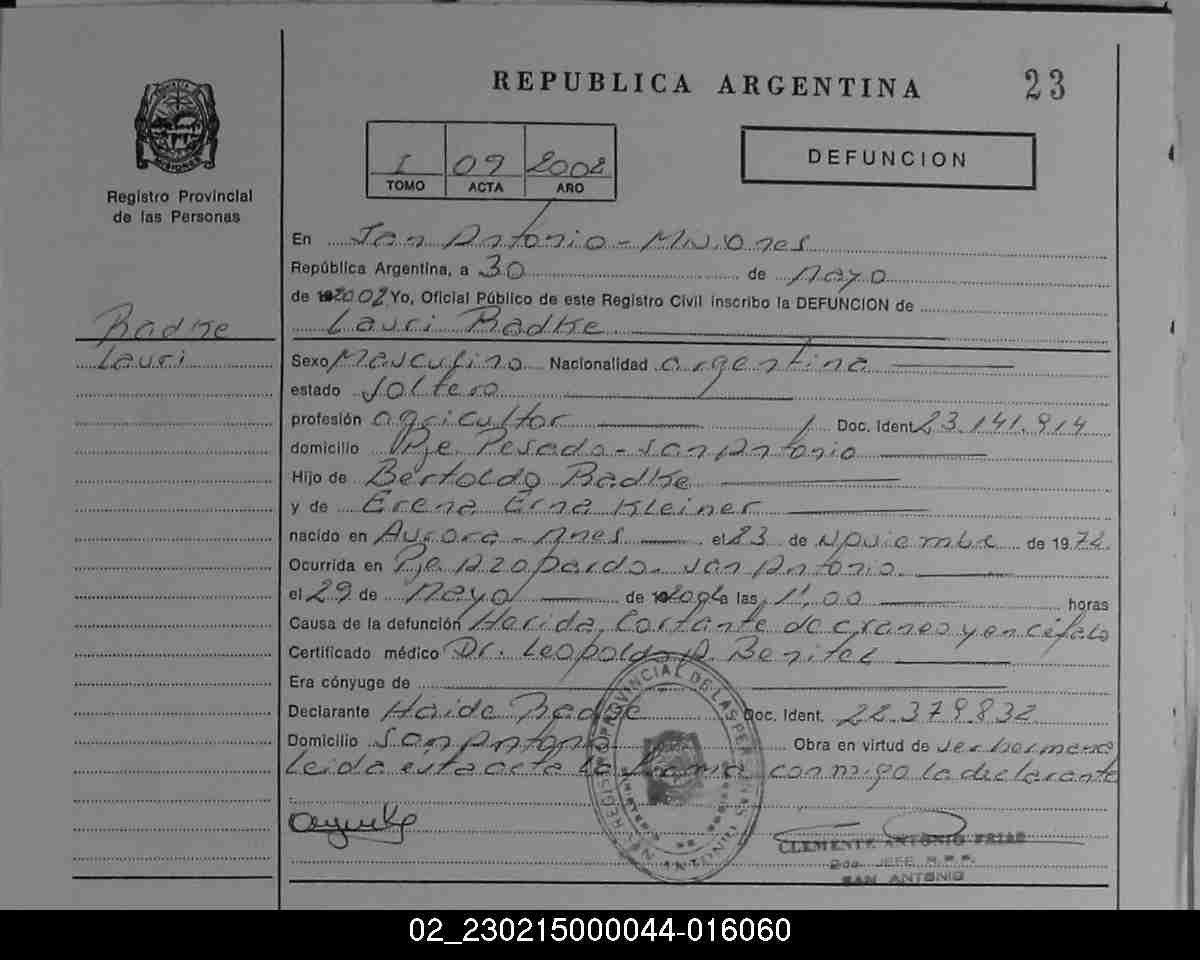 REPUBLICA ARGENTINA
23
I 09 2002
TOMO ACTA AÑO
DEFUNCION
Registro Provincial
de las Personas
Radke
Lauri
En San Antonio - Misiones
República Argentina, a 30 de Mayo
de 2002 Yo, Oficial Público de este Registro Civil inscribo la DEFUNCION de
Lauri Radke
Sexo Masculino Nacionalidad argentina
estado Soltero
profesión agricultor Doc. Ident. 23.141.914
domicilio Pje Pesado - San Antonio
Hijo de Bertoldo Radke
y de Erena Erna Kleiner
nacido en Aurora - Mnes el 23 de Noviembre de 1972
Ocurrida en Pje Azopardo - San Antonio
el 29 de Mayo de 2002 a las 11,00 horas
Causa de la defunción Herida Cortante de craneo y encéfalo
Certificado médico Dr. Leopoldo A. Benitez
Era cónyuge de
Declarante Haide Radke Doc. Ident. 22.379832
Domicilio San Antonio Obra en virtud de ser hermana
leida esta acta la firma conmigo la declarante
REGISTRO PROVINCIAL DE LAS PERSONAS
CLEMENTE ANTONIO FRIAS
2do. JEFE R.P.P.
SAN ANTONIO
02_230215000044-016060